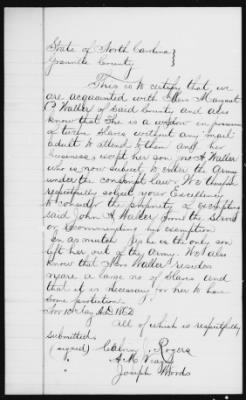 State of North Carolina }
Granville County }
This is to certify that we
are acquainted with Mrs Margaret
P Waller of said County and also
know that she is a widow in possession
of twelve slaves without any male
adult to attend to them and her
business except her son Jno A Waller
who is now subject to enter the Army
under the conscript law. We therefore
respectfully solicit your Excellency
to consider the propriety of exempting
said John A Waller from the service
or recommending his exemption
In as much as he is the only son
left her out of the Army. We also
know that Mrs Waller resides
near a large no of slaves and
that it is necessary for her to have
some protection.
Nov 10th day A.D. 1862
All of which is respectfully
submitted
(signed) Rogers
A. M.
Joseph Woods